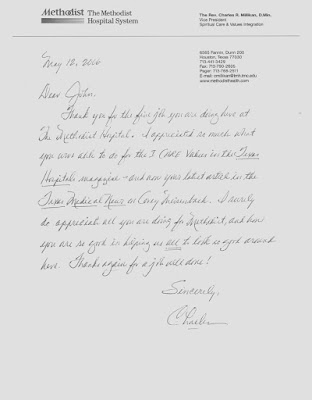 Methodist The Methodist
Hospital System
The Rev. Charles R. Millikan, D.Min.
Vice President
Spiritual Care & Values Integration
6565 Fannin, Dunn 200
Houston, Texas 77030
www.methodisthealth.com
May 12, 2006
Dear John,
Thank you for the fine job you are doing here at
The Methodist Hospital. I appreciated so much what
you were able to do for the I CARE Values in the Texas
Hospitals magazine - and now your latest article in the
Texas Medical News on Corey I surely
do appreciate all you are doing for Methodist, and how
you are so good in helping us all to look so good around
here. Thanks again for a job well done!
Sincerely,
Charles